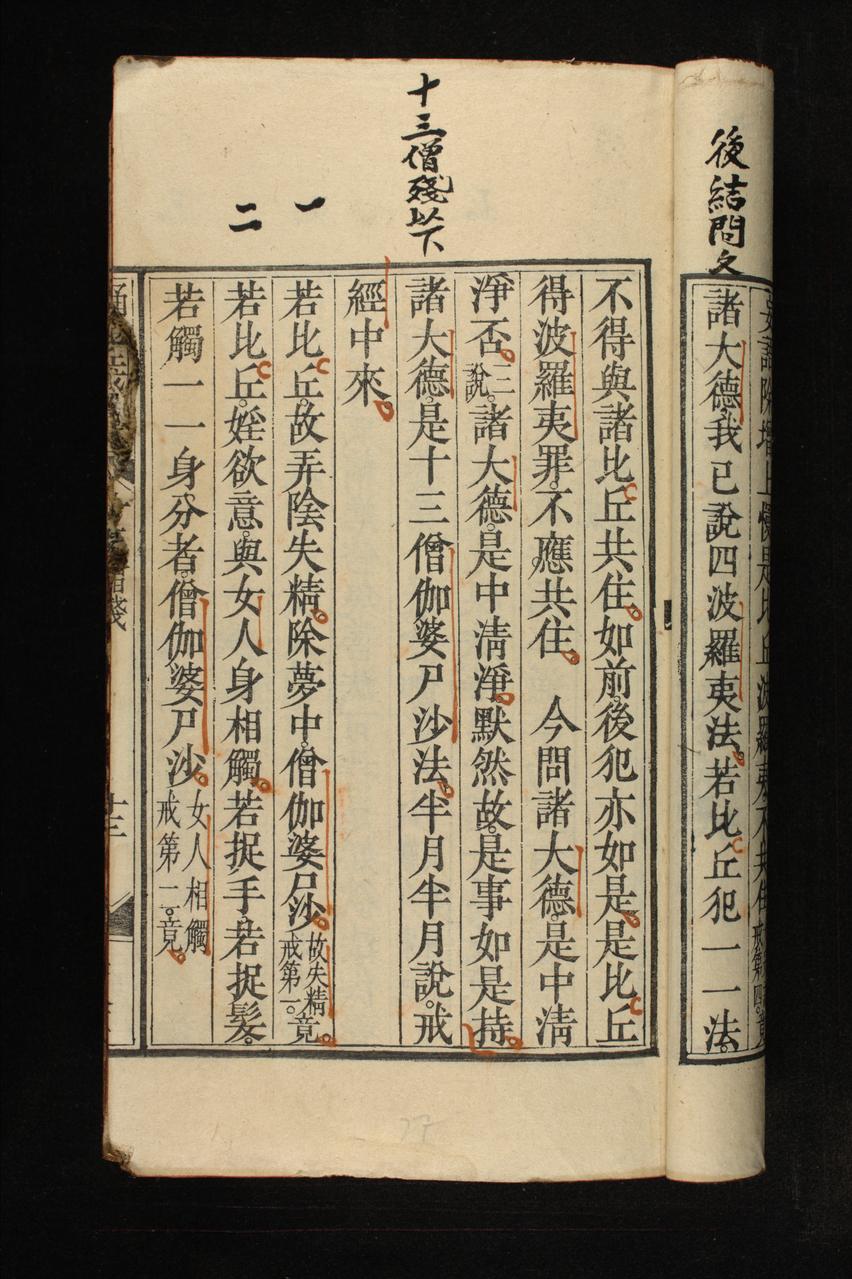 後結問文
妄語除增上慢是比丘波羅夷不共住戒第四竟
諸大德。我已說四波羅夷法。若比丘犯一一法。
十三僧殘以下
不得與諸比丘共住。如前。後犯亦如是。是比丘
得波羅夷罪。不應共住。 今問諸大德。是中清
淨否。三說。諸大德。是中清淨。默然故。是事如是持。
諸大德。是十三僧伽婆尸沙法。半月半月說。戒
經中來。
一
若比丘。故弄陰失精。除夢中。僧伽婆尸沙。故失精戒第一。竟。
二
若比丘。婬欲意。與女人身相觸。若捉手。若捉髮。
若觸一一身分者。僧伽婆尸沙。女人相觸戒第二。竟。